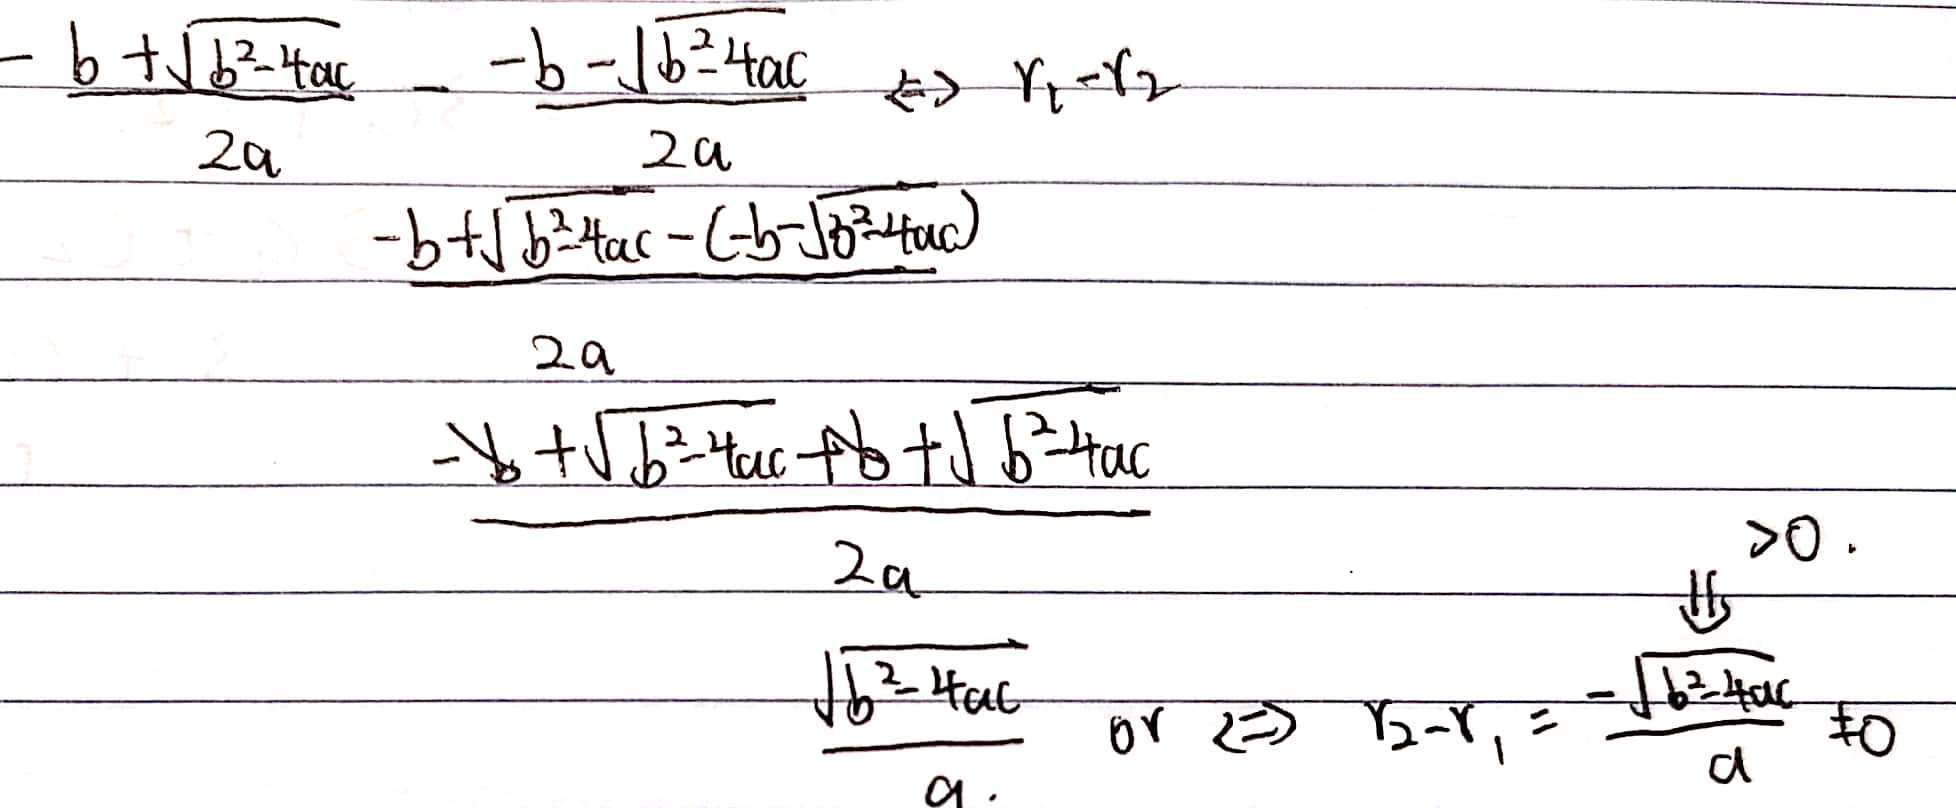 -b+√(b²-4ac) / 2a - -b-√(b²-4ac) / 2a <=> r₁-r₂
-b+√(b²-4ac) -(-b-√(b²-4ac)) / 2a
-b+√(b²-4ac) +b+√(b²-4ac) / 2a
>0.
⇓
√(b²-4ac) / a. or <=> r₂-r₁ = -√(b²-4ac) / a ≠0